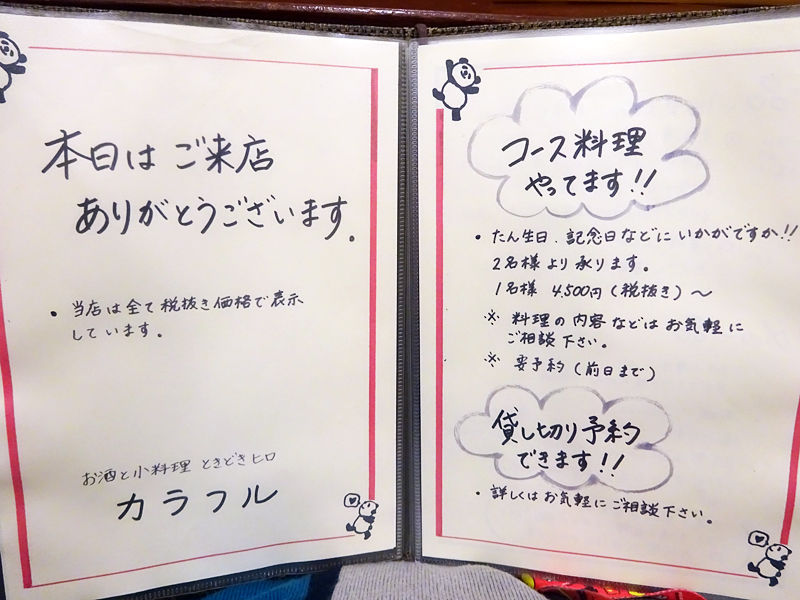 本日は ご来店
ありがとうございます。
・当店は全て税抜き価格で表示
しています。
お酒と小料理 ときどきヒロ
カラフル
コース料理
やってます!!
・たん生日、記念日などにいかがですか!!
2名様より承ります。
1名様 4,500円(税抜き)〜
※ 料理の内容などはお気軽に
ご相談下さい。
※ 要予約(前日まで)
貸し切り予約
できます!!
・詳しくはお気軽にご相談下さい。